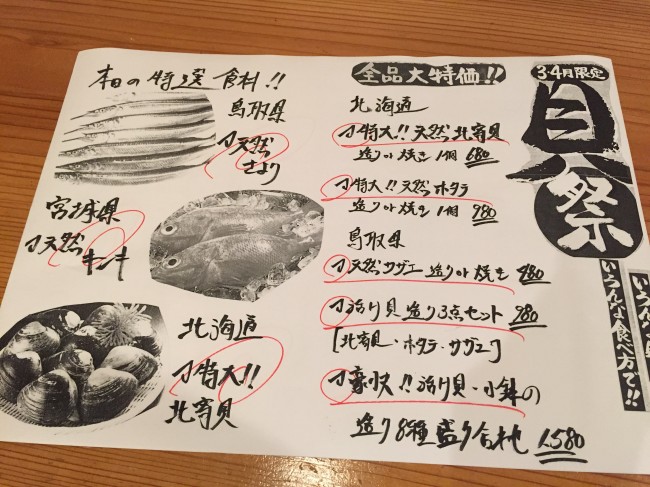 3・4月限定
貝祭
いろんな食べ方で!!
全品大特価!!
北海道
特大!! 天然北寄貝
造りor焼き 1個 680
特大!! 天然ホタテ
造りor焼き 1個 780
鳥取県
天然サザエ 造りor焼き 980
活け貝 造り3点セット 980
[北寄貝・ホタテ・サザエ]
豪快!! 活け貝・小鉢の
造り8種盛り合わせ 1,580
本日の特選食材!!
鳥取県
天然
さより
宮城県
天然
キンキ
北海道
特大!!
北寄貝